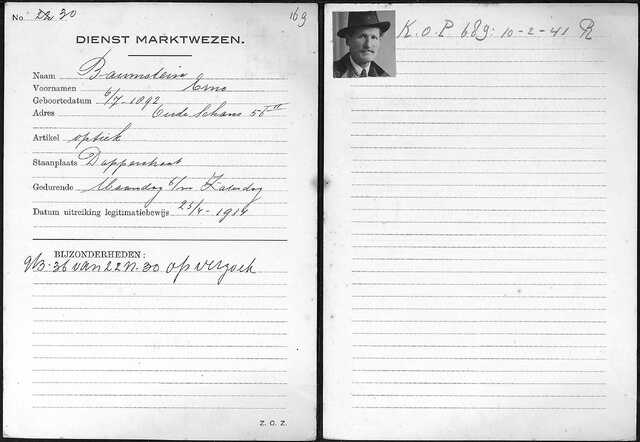 No 30
169
DIENST MARKTWEZEN.
Naam Baumstein
Voornamen Erno
Geboortedatum 6/7-1892
Adres Oude Schans 56 II
Artikel optiek
Staanplaats Dapperstraat
Gedurende Maandag t/m Zaterdag
Datum uitreiking legitimatiebewijs 23/4-1914
BIJZONDERHEDEN:
36 van 22 N. 30 op verzoek
Z. O. Z.
K.O.P 689: 10-2-41 R